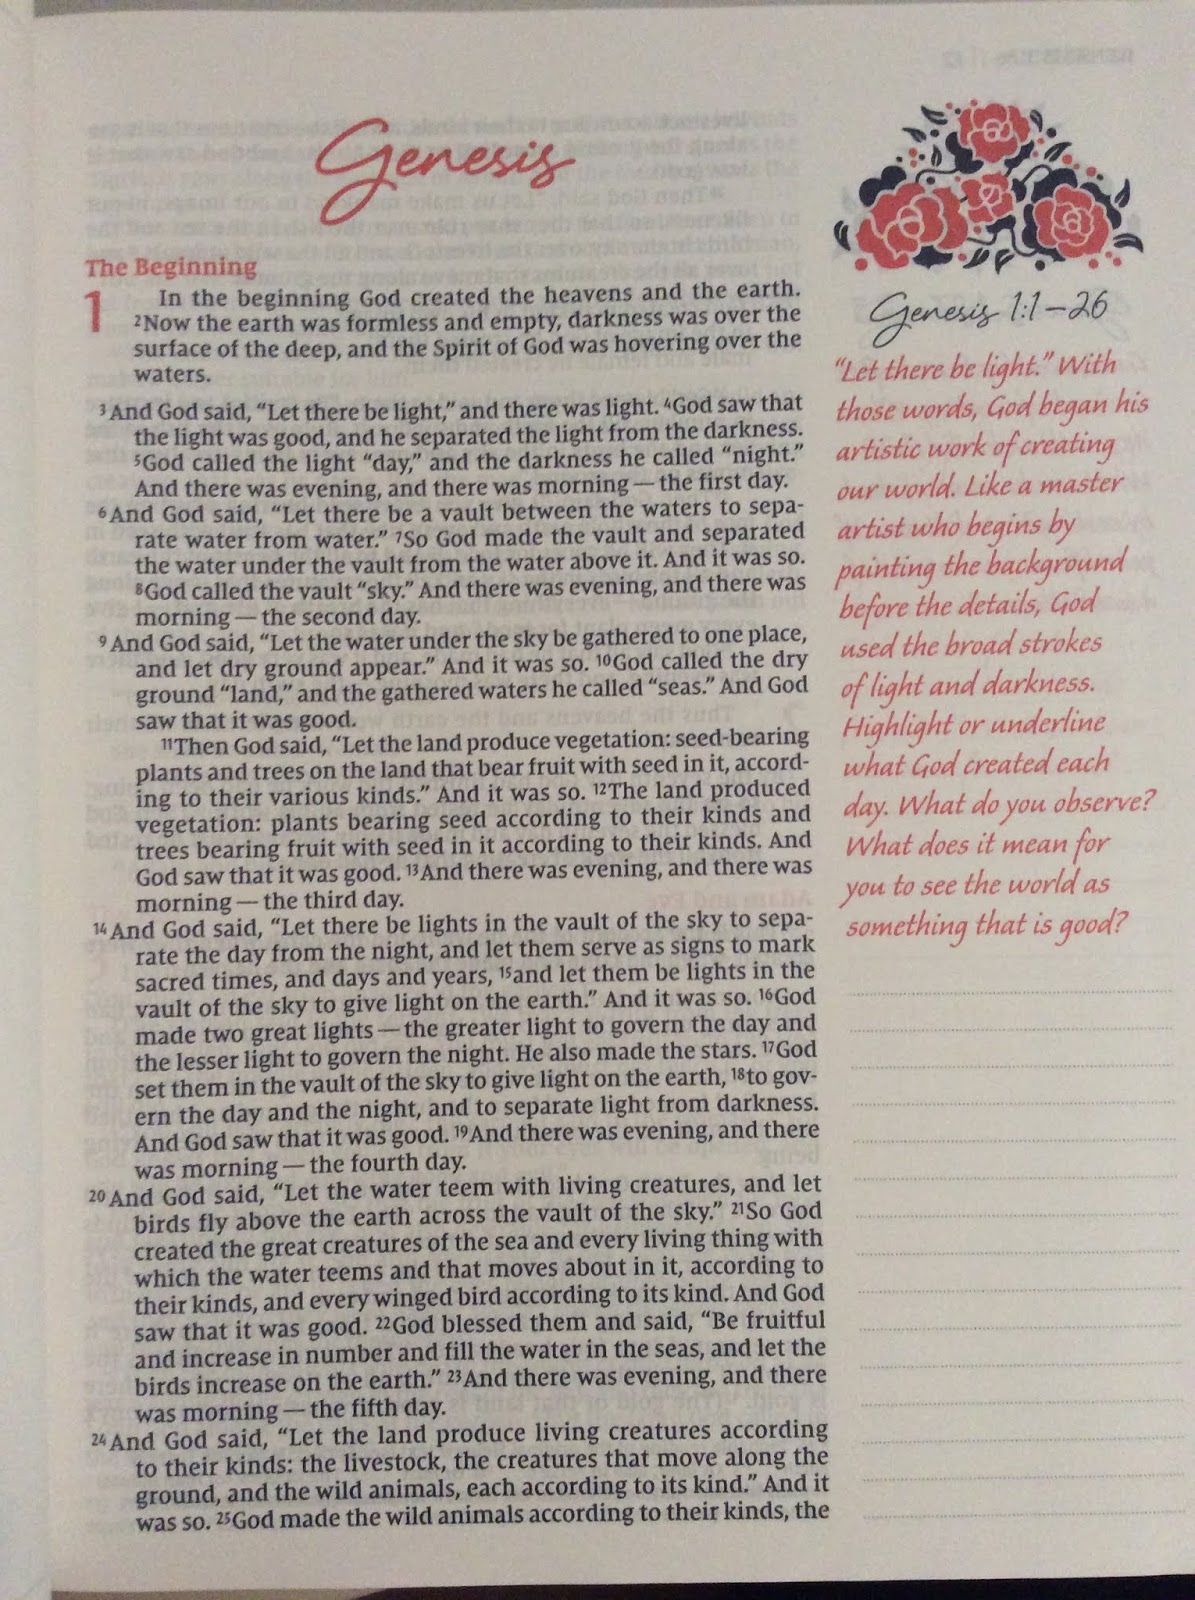 Genesis
The Beginning
1 In the beginning God created the heavens and the earth.
2Now the earth was formless and empty, darkness was over the
surface of the deep, and the Spirit of God was hovering over the
waters.
3And God said, “Let there be light,” and there was light. 4God saw that
the light was good, and he separated the light from the darkness.
5God called the light “day,” and the darkness he called “night.”
And there was evening, and there was morning — the first day.
6And God said, “Let there be a vault between the waters to sepa-
rate water from water.” 7So God made the vault and separated
the water under the vault from the water above it. And it was so.
8God called the vault “sky.” And there was evening, and there was
morning — the second day.
9And God said, “Let the water under the sky be gathered to one place,
and let dry ground appear.” And it was so. 10God called the dry
ground “land,” and the gathered waters he called “seas.” And God
saw that it was good.
11Then God said, “Let the land produce vegetation: seed-bearing
plants and trees on the land that bear fruit with seed in it, accord-
ing to their various kinds.” And it was so. 12The land produced
vegetation: plants bearing seed according to their kinds and
trees bearing fruit with seed in it according to their kinds. And
God saw that it was good. 13And there was evening, and there was
morning — the third day.
14And God said, “Let there be lights in the vault of the sky to sepa-
rate the day from the night, and let them serve as signs to mark
sacred times, and days and years, 15and let them be lights in the
vault of the sky to give light on the earth.” And it was so. 16God
made two great lights — the greater light to govern the day and
the lesser light to govern the night. He also made the stars. 17God
set them in the vault of the sky to give light on the earth, 18to gov-
ern the day and the night, and to separate light from darkness.
And God saw that it was good. 19And there was evening, and there
was morning — the fourth day.
20And God said, “Let the water teem with living creatures, and let
birds fly above the earth across the vault of the sky.” 21So God
created the great creatures of the sea and every living thing with
which the water teems and that moves about in it, according to
their kinds, and every winged bird according to its kind. And God
saw that it was good. 22God blessed them and said, “Be fruitful
and increase in number and fill the water in the seas, and let the
birds increase on the earth.” 23And there was evening, and there
was morning — the fifth day.
24And God said, “Let the land produce living creatures according
to their kinds: the livestock, the creatures that move along the
ground, and the wild animals, each according to its kind.” And it
was so. 25God made the wild animals according to their kinds, the
Genesis 1:1–26
“Let there be light.” With
those words, God began his
artistic work of creating
our world. Like a master
artist who begins by
painting the background
before the details, God
used the broad strokes
of light and darkness.
Highlight or underline
what God created each
day. What do you observe?
What does it mean for
you to see the world as
something that is good?